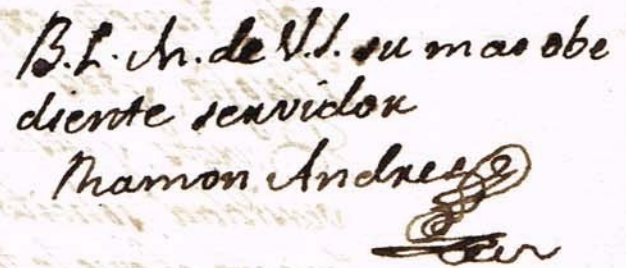 B. L. M. de V. S. su mas obe
diente servidor
Ramon Andres